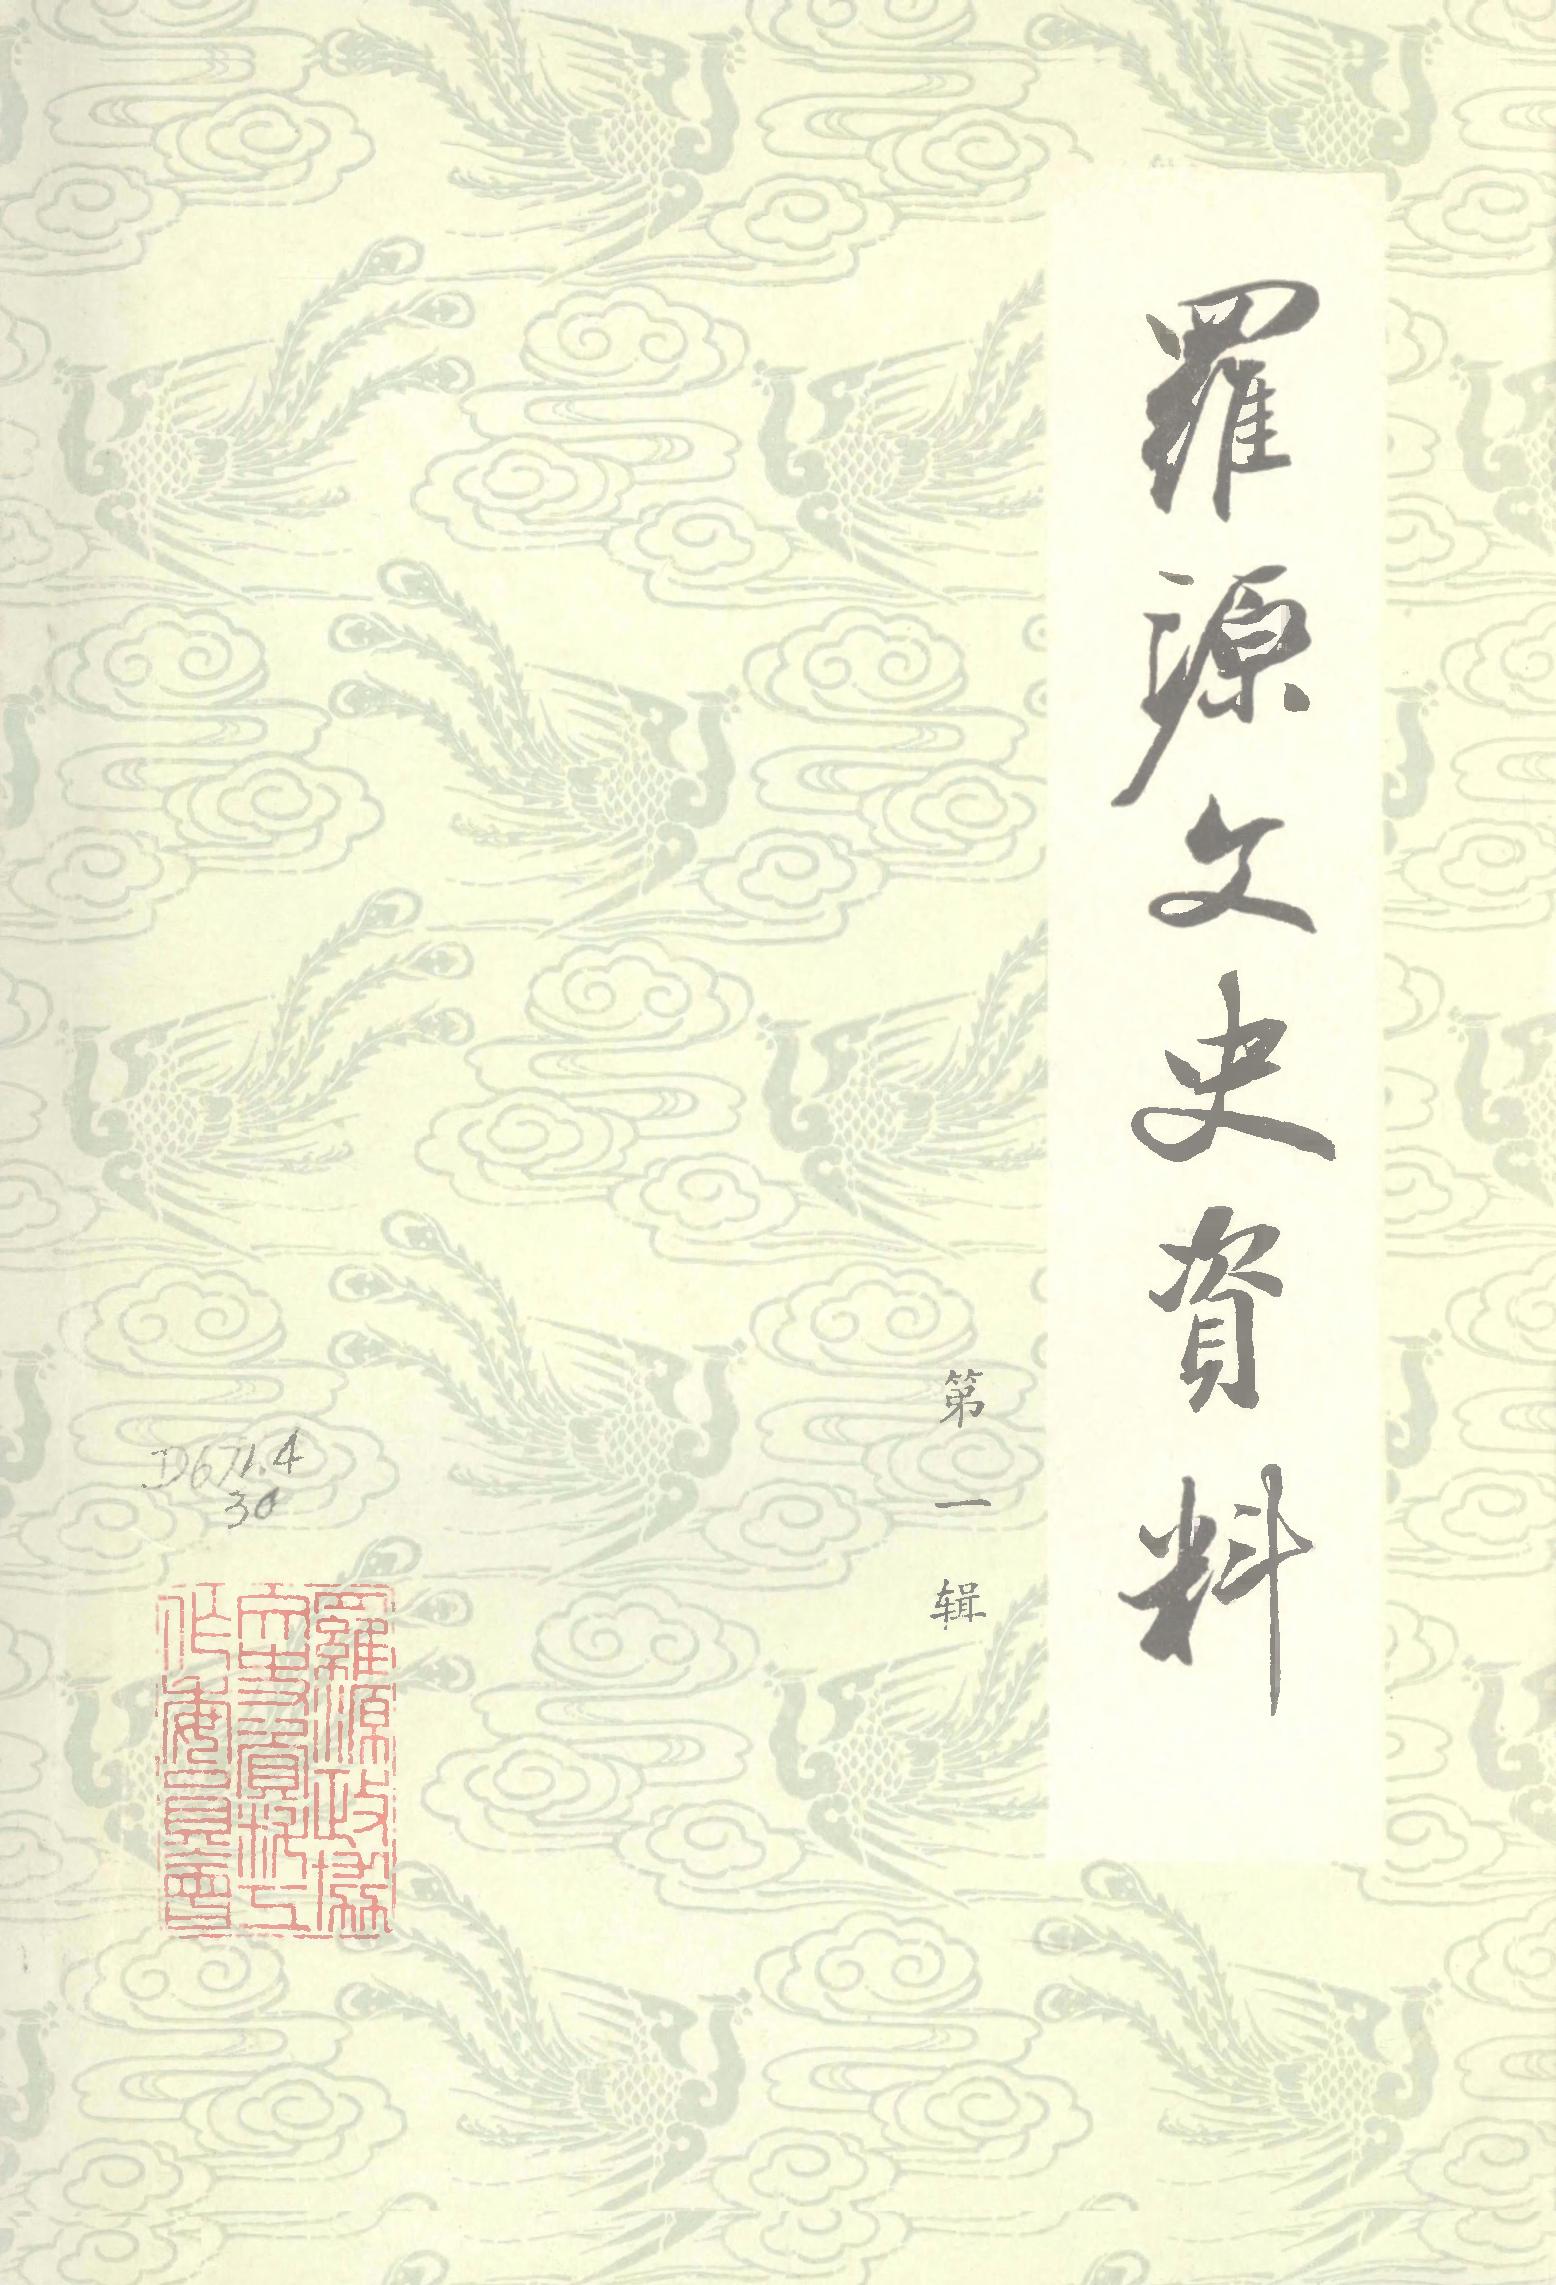 羅源文史資料
第一辑
D671.4
30
羅源政協
文史資料工
作委員會